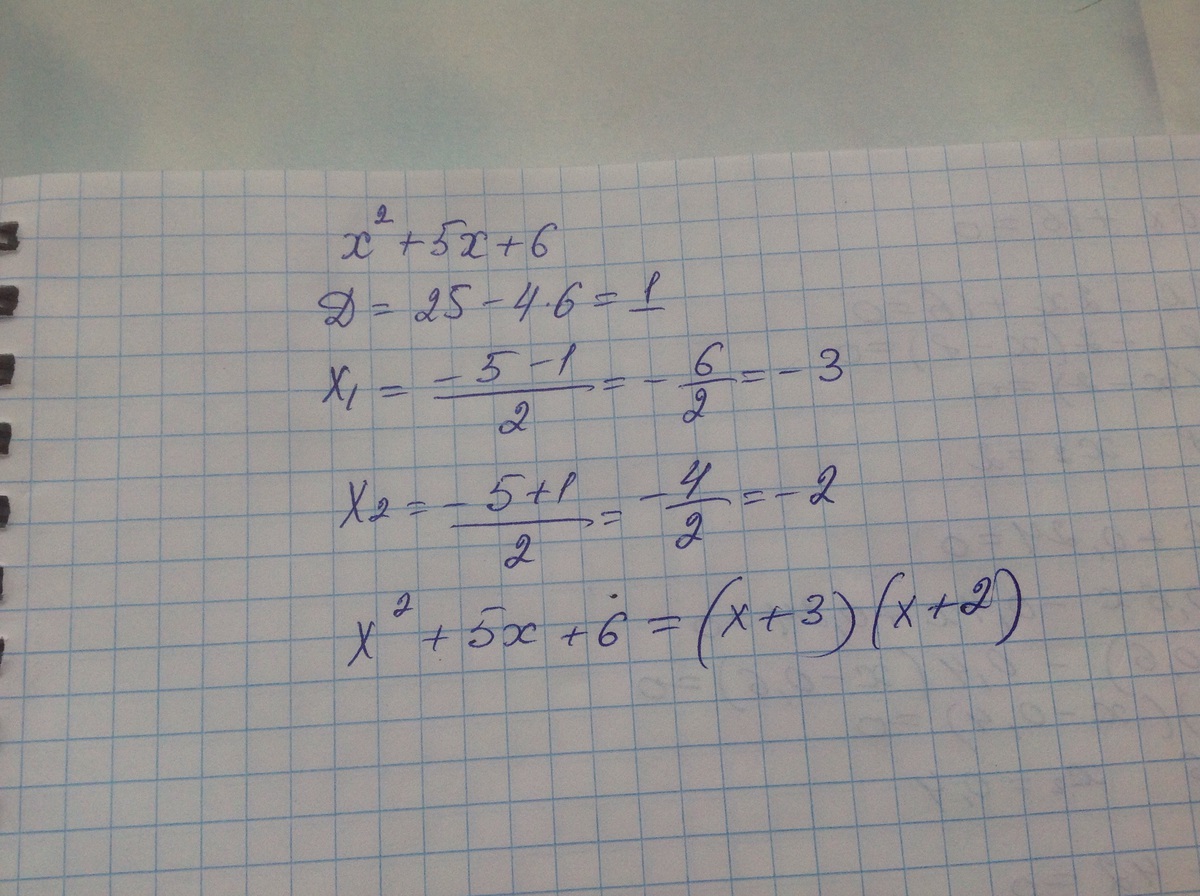 x² + 5x + 6
Д = 25 - 4·6 = 1
x₁ = (-5 - 1)/2 = -6/2 = -3
x₂ = (-5 + 1)/2 = -4/2 = -2
x² + 5x + 6 = (x + 3)(x + 2)